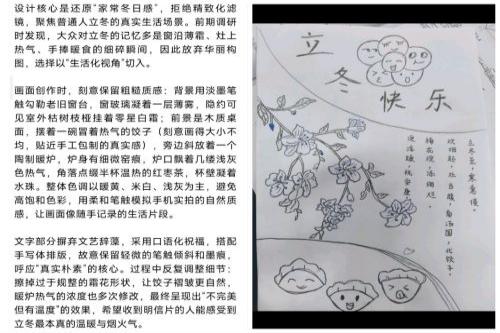 设计核心是还原“家常冬日感”，拒绝精致化滤
镜，聚焦普通人立冬的真实生活场景。前期调研
时发现，大众对立冬的记忆多是窗沿薄霜、灶上
热气、手捧暖食的细碎瞬间，因此放弃华丽构
图，选择以“生活化视角”切入。
画面创作时，刻意保留粗糙质感：背景用淡墨笔
触勾勒老旧窗台，窗玻璃凝着一层薄雾，隐约可
见室外枯树枝桠挂着零星白霜；前景是木质桌
面，摆着一碗冒着热气的饺子（刻意画得大小不
均，贴近手工包制的真实感），旁边斜放着一个
陶制暖炉，炉身有细微窑痕，炉口飘着几缕浅灰
色热气，角落点缀半杯温热的红枣茶，杯壁凝着
水珠。整体色调以暖黄、米白、浅灰为主，避免
高饱和色彩，用柔和笔触模拟手机实拍的自然质
感，让画面像随手记录的生活片段。
文字部分摒弃文艺辞藻，采用口语化祝福，搭配
手写体排版，故意保留轻微的笔触倾斜和墨痕，
呼应“真实朴素”的核心。过程中反复调整细节：
擦掉过于规整的霜花形状，让饺子褶皱更自然，
暖炉热气的浓度也多次修改，最终呈现出“不完美
但有温度”的效果，希望收到明信片的人能感受到
立冬最本真的温暖与烟火气。
立
冬
快乐
立冬至，寒意漫。
北饺子。
梅花绽，
愿冬暖，祝安康